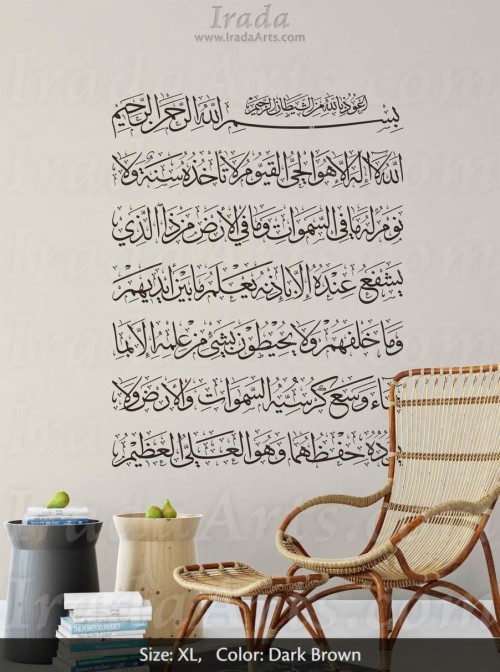 Irada
www.IradaArts.com
أعوذ بالله من الشيطان الرجيم
بسم الله الرحمن الرحيم
الله لا إله إلا هو الحي القيوم لا تأخذه سنة ولا
نوم له ما في السموات وما في الأرض من ذا الذي
يشفع عنده إلا بإذنه يعلم ما بين أيديهم
وما خلفهم ولا يحيطون بشيء من علمه إلا بما
وسع كرسيه السموات والأرض ولا
حفظهما وهو العلي العظيم
Size: XL, Color: Dark Brown